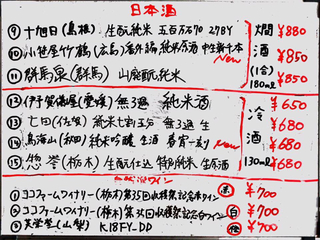 日本酒
⑨ 十旭日(島根) 生酛純米 五百万石70 27BY 燗酒(1合)180ml ¥880
⑩ 小笹屋竹鶴(広島) 番外編 純米原酒 中生新千本 New ¥850
⑪ 群馬泉(群馬) 山廃酛純米 ¥850
⑫ 伊予賀儀屋(愛媛) 無3過 純米酒 冷酒 130ml ¥650
⑬ 七田(佐賀) 純米七割五分 無3過 生 ¥680
⑭ 鳥海山(秋田) 純米吟醸 生酒 New ¥680
⑮ 惣誉(栃木) 生酛仕込 純米 生原酒 ¥680
ワイン
① ココファームワイナリー(栃木) 第35回収穫祭記念赤ワイン 赤 ¥700
② ココファームワイナリー(栃木) 第35回収穫祭記念白ワイン 白 ¥700
③ (山梨) K18FY-DD 橙 ¥700